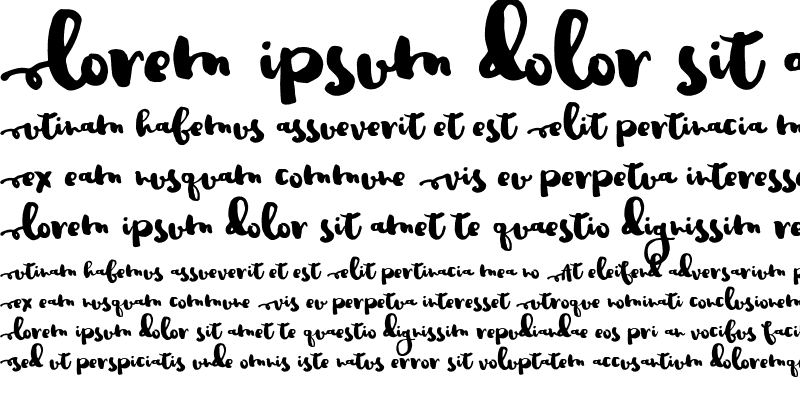 lorem ipsum dolor sit a
utinam habemus assueverit et est elit pertinacia m
ex eam nusquam commune vis eu perpetua interesse
lorem ipsum dolor sit amet te quaestio dignissim re
utinam habemus assueverit et est elit pertinacia mea no At eleifend adversarium p
ex eam nusquam commune vis eu perpetua interesset utroque nominati conclusionem
lorem ipsum dolor sit amet te quaestio dignissim repudiandae eos pri an vocibus faci
sed ut perspiciatis unde omnis iste natus error sit voluptatem accusantium doloremqu